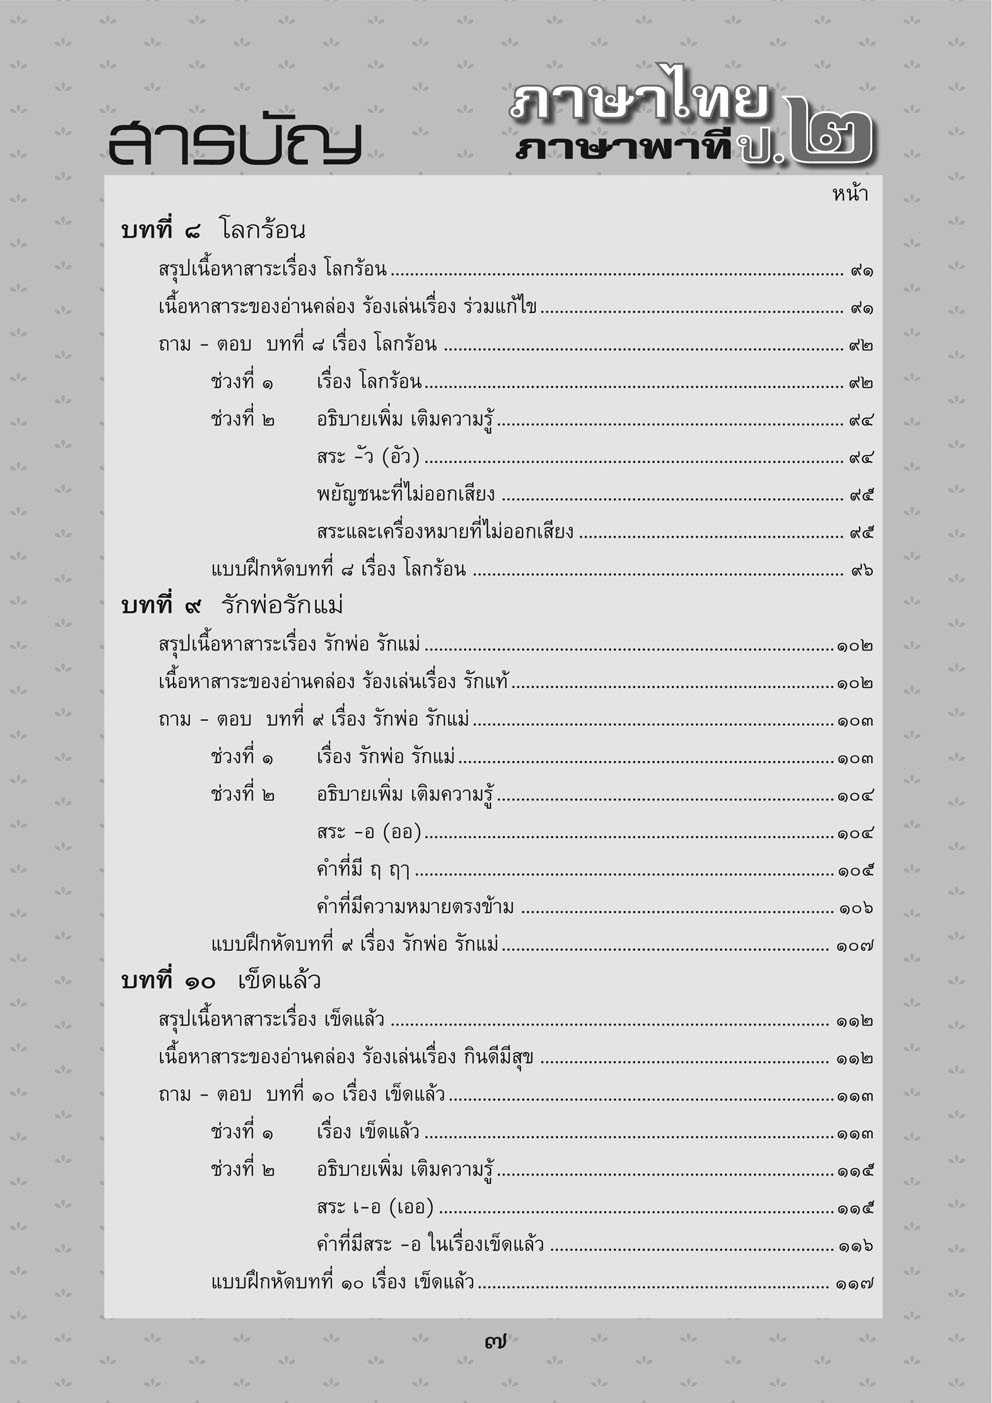 สารบัญ
ภาษาไทย
ภาษาพาที ป.๒
หน้า
บทที่ ๘ โลกร้อน
สรุปเนื้อหาสาระเรื่อง โลกร้อน ........ ๙๑
เนื้อหาสาระของอ่านคล่อง ร้องเล่นเรื่อง ร่วมแก้ไข ........ ๙๑
ถาม - ตอบ บทที่ ๘ เรื่อง โลกร้อน ........ ๙๒
ช่วงที่ ๑ เรื่อง โลกร้อน ........ ๙๒
ช่วงที่ ๒ อธิบายเพิ่ม เติมความรู้ ........ ๙๔
สระ -ัว (อัว) ........ ๙๔
พยัญชนะที่ไม่ออกเสียง ........ ๙๕
สระและเครื่องหมายที่ไม่ออกเสียง ........ ๙๕
แบบฝึกหัดบทที่ ๘ เรื่อง โลกร้อน ........ ๙๖
บทที่ ๙ รักพ่อรักแม่
สรุปเนื้อหาสาระเรื่อง รักพ่อ รักแม่ ........ ๑๐๒
เนื้อหาสาระของอ่านคล่อง ร้องเล่นเรื่อง รักแท้ ........ ๑๐๒
ถาม - ตอบ บทที่ ๙ เรื่อง รักพ่อ รักแม่ ........ ๑๐๓
ช่วงที่ ๑ เรื่อง รักพ่อ รักแม่ ........ ๑๐๓
ช่วงที่ ๒ อธิบายเพิ่ม เติมความรู้ ........ ๑๐๔
สระ -อ (ออ) ........ ๑๐๔
คำที่มี ฤ ฤๅ ........ ๑๐๕
คำที่มีความหมายตรงข้าม ........ ๑๐๖
แบบฝึกหัดบทที่ ๙ เรื่อง รักพ่อ รักแม่ ........ ๑๐๗
บทที่ ๑๐ เข็ดแล้ว
สรุปเนื้อหาสาระเรื่อง เข็ดแล้ว ........ ๑๑๒
เนื้อหาสาระของอ่านคล่อง ร้องเล่นเรื่อง กินดีมีสุข ........ ๑๑๒
ถาม - ตอบ บทที่ ๑๐ เรื่อง เข็ดแล้ว ........ ๑๑๓
ช่วงที่ ๑ เรื่อง เข็ดแล้ว ........ ๑๑๓
ช่วงที่ ๒ อธิบายเพิ่ม เติมความรู้ ........ ๑๑๕
สระ เ-อ (เออ) ........ ๑๑๕
คำที่มีสระ -อ ในเรื่องเข็ดแล้ว ........ ๑๑๖
แบบฝึกหัดบทที่ ๑๐ เรื่อง เข็ดแล้ว ........ ๑๑๗
๗